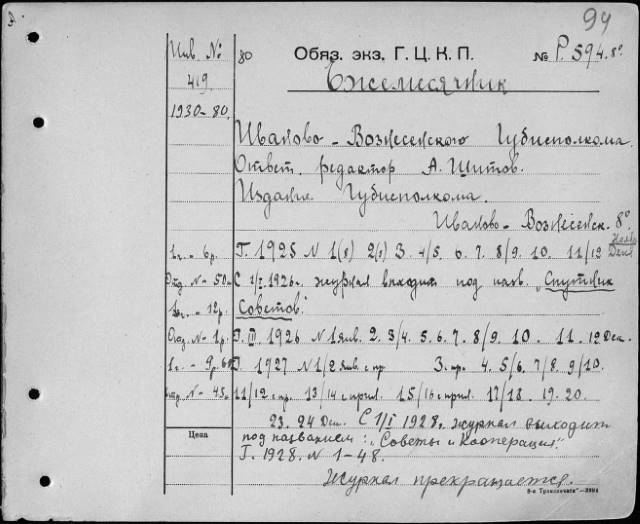 99
Инв. № 80 Обяз. экз. Г. Ц. К. П. № Р. 594. 8°
419 Ежемесячник
1930-80.
Иваново-Вознесенского Губисполкома.
Ответ. редактор А. Шитов.
Издание Губисполкома.
Иваново-Вознесенск. 8°
1 г. - 6 р. Г. 1925 N 1(8) 2(9) 3. 4/5. 6. 7. 8/9. 10. 11/12
Отд. N - 50 С 1/I 1926 г. журнал выходит под назв. „Спутник
1 г. - 12 р. Советов."
Отд. N - 1 р. Г. III 1926 N 1 янв. 2. 3/4. 5. 6. 7. 8/9. 10. 11. 12 Дек.
1 г. - 9 р. 60 Г. 1927 N 1/2 Янв. с пр 3. пр. 4. 5/6. 7/8. 9/10.
N - 45 к. 11/12 с пр. 13/14 с прил. 15/16 с прил. 17/18. 19. 20.
23. 24 Дек. С 1/I 1928 г. журнал выходит
Цена под названием: „Советы и Кооперация".
Г. 1928. N 1-48.
Журнал прекращается.